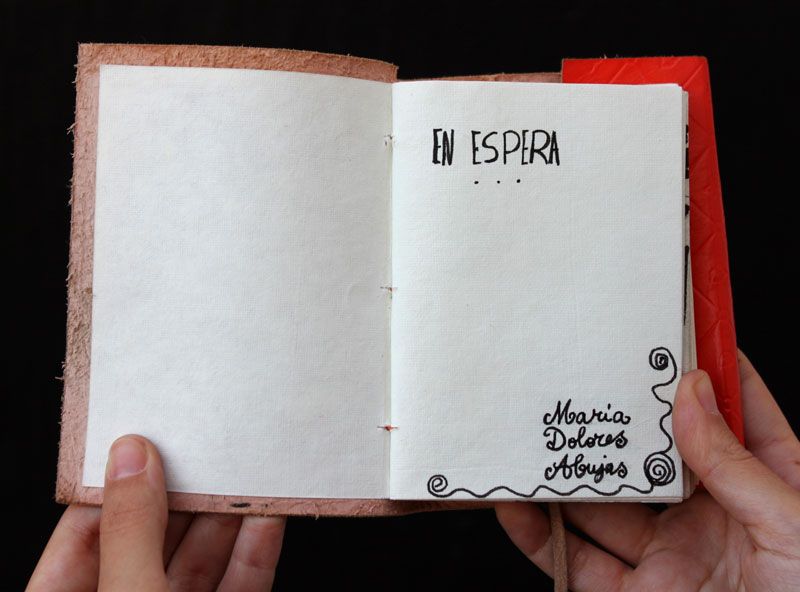 EN ESPERA
...
Maria
Dolores
Abujas